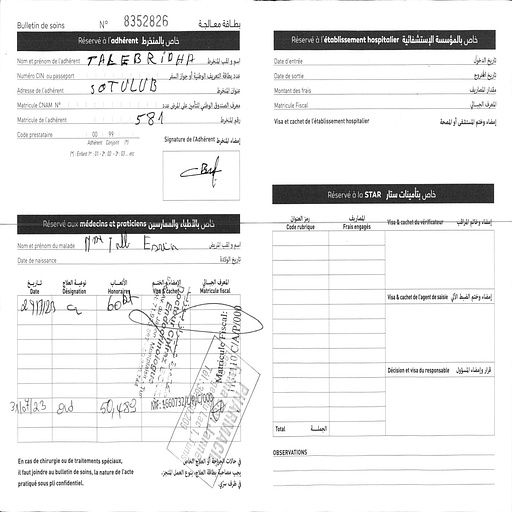 Bulletin de soins N° 8352826 بطاقة معالجة
Réservé à l'adhérent خاص بالمنخرط
Nom et prénom de l'adhérent TALEB RIDHA إسم و لقب المنخرط
Numéro CIN ou passeport عدد بطاقة التعريف الوطنية أو جواز السفر
Adresse de l'adhérent SOTULUB عنوان المنخرط
Matricule CNAM N° معرف الصندوق الوطني للتأمين على المرض عدد
Matricule de l'adhérent 581 رقم المنخرط
Code prestataire 00 99
Adhérent Conjoint (*)
(*) : Enfant 1er : 01 - 2e : 02 - 3e : 03 ... etc
Signature de l'Adhérent إمضاء المنخرط
Réservé aux médecins et praticiens خاص بالأطباء والممارسين
Nom et prénom du malade إسم و لقب المريض
Date de naissance تاريخ الولادة
تاريخ Date
نوعية العلاج Désignation
الأتعاب Honoraires
الإمضاء و الختم Visa & cachet
المعرف الجبائي Matricule fiscal
60 DT
Matricule Fiscal:
31/07/23 50,483
PHARMACIE
En cas de chirurgie ou de traitements spéciaux,
il faut joindre au bulletin de soins, la nature de l'acte
pratiqué sous pli confidentiel.
في حالات الجراحة أو العلاج الخاص
يجب مصاحبة بطاقة العلاج، بنوع العمل المنجز،
في ظرف سري.
Réservé à l'établissement hospitalier خاص بالمؤسسة الإستشفائية
Date d'entrée تاريخ الدخول
Date de sortie تاريخ الخروج
Montant des frais مقدار المصاريف
Matricule Fiscal المعرف الجبائي
Visa et cachet de l'établissement hospitalier إمضاء وختم المستشفى أو المصحة
Réservé à la STAR خاص بتأمينات ستار
رمز العنوان Code rubrique
المصاريف Frais engagés
Visa & cachet du vérificateur إمضاء وختم المراقب
Visa & cachet de l'agent de saisie إمضاء وختم الضبط الآلي
Décision et visa du responsable قرار وإمضاء المسؤول
Total الجملة
OBSERVATIONS